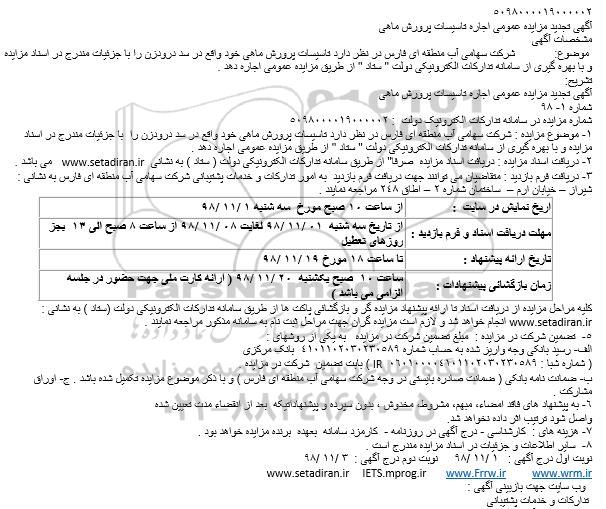 ۵۰۹۸۰۰۰۰۱۹۰۰۰۰۰۲
آگهی تجدید مزایده عمومی اجاره تاسیسات پرورش ماهی
مشخصات آگهی
موضوع: شرکت سهامی آب منطقه ای فارس در نظر دارد تاسیسات پرورش ماهی خود واقع در سد درودزن را با جزئیات مندرج در اسناد مزایده
و با بهره گیری از سامانه تدارکات الکترونیکی دولت " ستاد " از طریق مزایده عمومی اجاره دهد .
تشریح:
آگهی تجدید مزایده عمومی اجاره تاسیسات پرورش ماهی
شماره ۱- ۹۸
شماره مزایده در سامانه تدارکات الکترونیک دولت : ۵۰۹۸۰۰۰۰۱۹۰۰۰۰۰۲
۱- موضوع مزایده : شرکت سهامی آب منطقه ای فارس در نظر دارد تاسیسات پرورش ماهی خود واقع در سد درودزن را با جزئیات مندرج در اسناد
مزایده و با بهره گیری از سامانه تدارکات الکترونیکی دولت " ستاد " از طریق مزایده عمومی اجاره دهد .
۲- دریافت اسناد مزایده : دریافت اسناد مزایده صرفا" از طریق سامانه تدارکات الکترونیکی دولت ( ستاد ) به نشانی www.setadiran.ir می باشد .
۳- دریافت فرم بازدید : متقاضیان می توانند جهت دریافت فرم بازدید به امور تدارکات و خدمات پشتیبانی شرکت سهامی آب منطقه ای فارس به نشانی :
شیراز – خیابان ارم – ساختمان شماره ۲ – اطاق ۲۴۸ مراجعه نمایند .
تاریخ نمایش در سایت : از ساعت ۱۰ صبح مورخ سه شنبه ۹۸/۱۱/۱
مهلت دریافت اسناد و فرم بازدید : از تاریخ سه شنبه ۹۸/۱۱/۰۱ لغایت ۹۸/۱۱/۰۸ از ساعت ۸ صبح الی ۱۳ بجز
روزهای تعطیل
تاریخ ارائه پیشنهاد : تا ساعت ۱۸ مورخ ۹۸/۱۱/۱۹
زمان بازگشائی پیشنهادات : ساعت ۱۰ صبح یکشنبه ۹۸/۱۱/۲۰ ( ارائه کارت ملی جهت حضور در جلسه
الزامی می باشد )
کلیه مراحل مزایده از دریافت اسناد تا ارائه پیشنهاد مزایده گر و بازگشائی پاکت ها از طریق سامانه تدارکات الکترونیکی دولت (ستاد ) به نشانی :
www.setadiran.ir انجام خواهد شد و لازم است مزایده گران جهت مراحل ثبت نام به سامانه مذکور مراجعه نمایند .
۵- تضمین شرکت در مزایده : مبلغ تضمین شرکت در مزایده به یکی از روشهای :
الف- رسید بانکی وجه واریز شده به حساب شماره ۴۱۰۱۱۰۲۰۳۰۲۳۰۵۸۹ بانک مرکزی
( شماره شبا : IR ۰۶۰۱۰۰۰۰۴۱۰۱۱۰۲۰۳۰۲۳۰۵۸۹ ) بابت تضمین شرکت در مزایده .
ب- ضمانت نامه بانکی ( ضمانت صادره بایستی در وجه شرکت سهامی آب منطقه ای فارس ) و با ذکر موضوع مزایده تکمیل شده باشد . ج- اوراق
مشارکت .
۶- به پیشنهاد های فاقد امضاء، مبهم، مشروط، مخدوش ، بدون سپرده و پیشنهاداتیکه بعد از انقضاء مدت تعیین شده
واصل شود ترتیب اثر داده نخواهد شد.
۷- هزینه های : کارشناسی - درج آگهی در روزنامه - کارمزد سامانه بعهده برنده مزایده خواهد بود .
۸- سایر اطلاعات و جزئیات در اسناد مزایده مندرج است .
نوبت اول درج آگهی : ۱ /۱۱ /۹۸ نوبت دوم درج آگهی : ۳ /۱۱ /۹۸
www.setadiran.ir IETS.mprog.ir www.Frrw.ir www.wrm.ir
وب سایت جهت بازبینی آگهی :
تدارکات و خدمات پشتیبانی